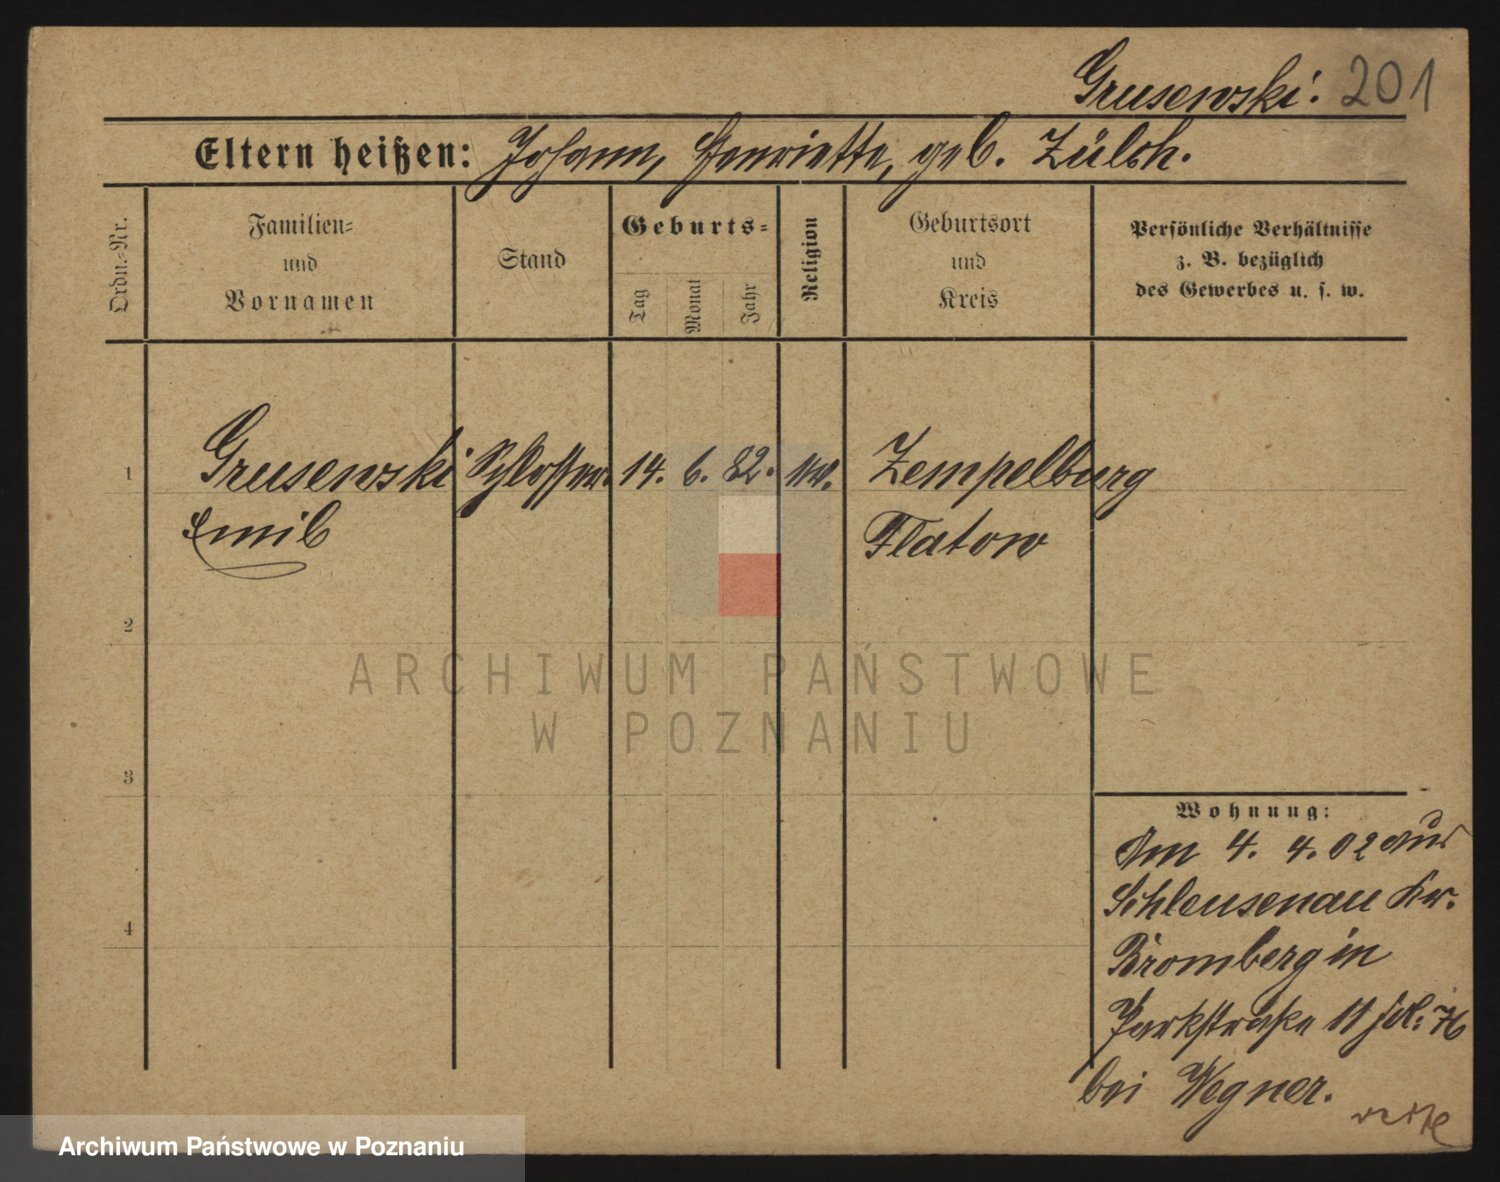 Grusewski. 201
Eltern heißen: Johann, Henriette, geb. Zülch.
Ordn.-Nr.
Familien-
und
Vornamen
Stand
Geburts-
Tag
Monat
Jahr
Religion
Geburtsort
und
Kreis
Persönliche Verhältnisse
z. B. bezüglich
des Gewerbes u. s. w.
1 Grusewski Schlosser. 14. 6. 82. Zempelburg
Emil Flatow
2
3
4
Wohnung:
Am 4. 4. 02 aus
Schleusenau Kr.
Bromberg in
Parkstraße 11
bei Wegner.
ARCHIWUM PAŃSTWOWE
W POZNANIU
Archiwum Państwowe w Poznaniu